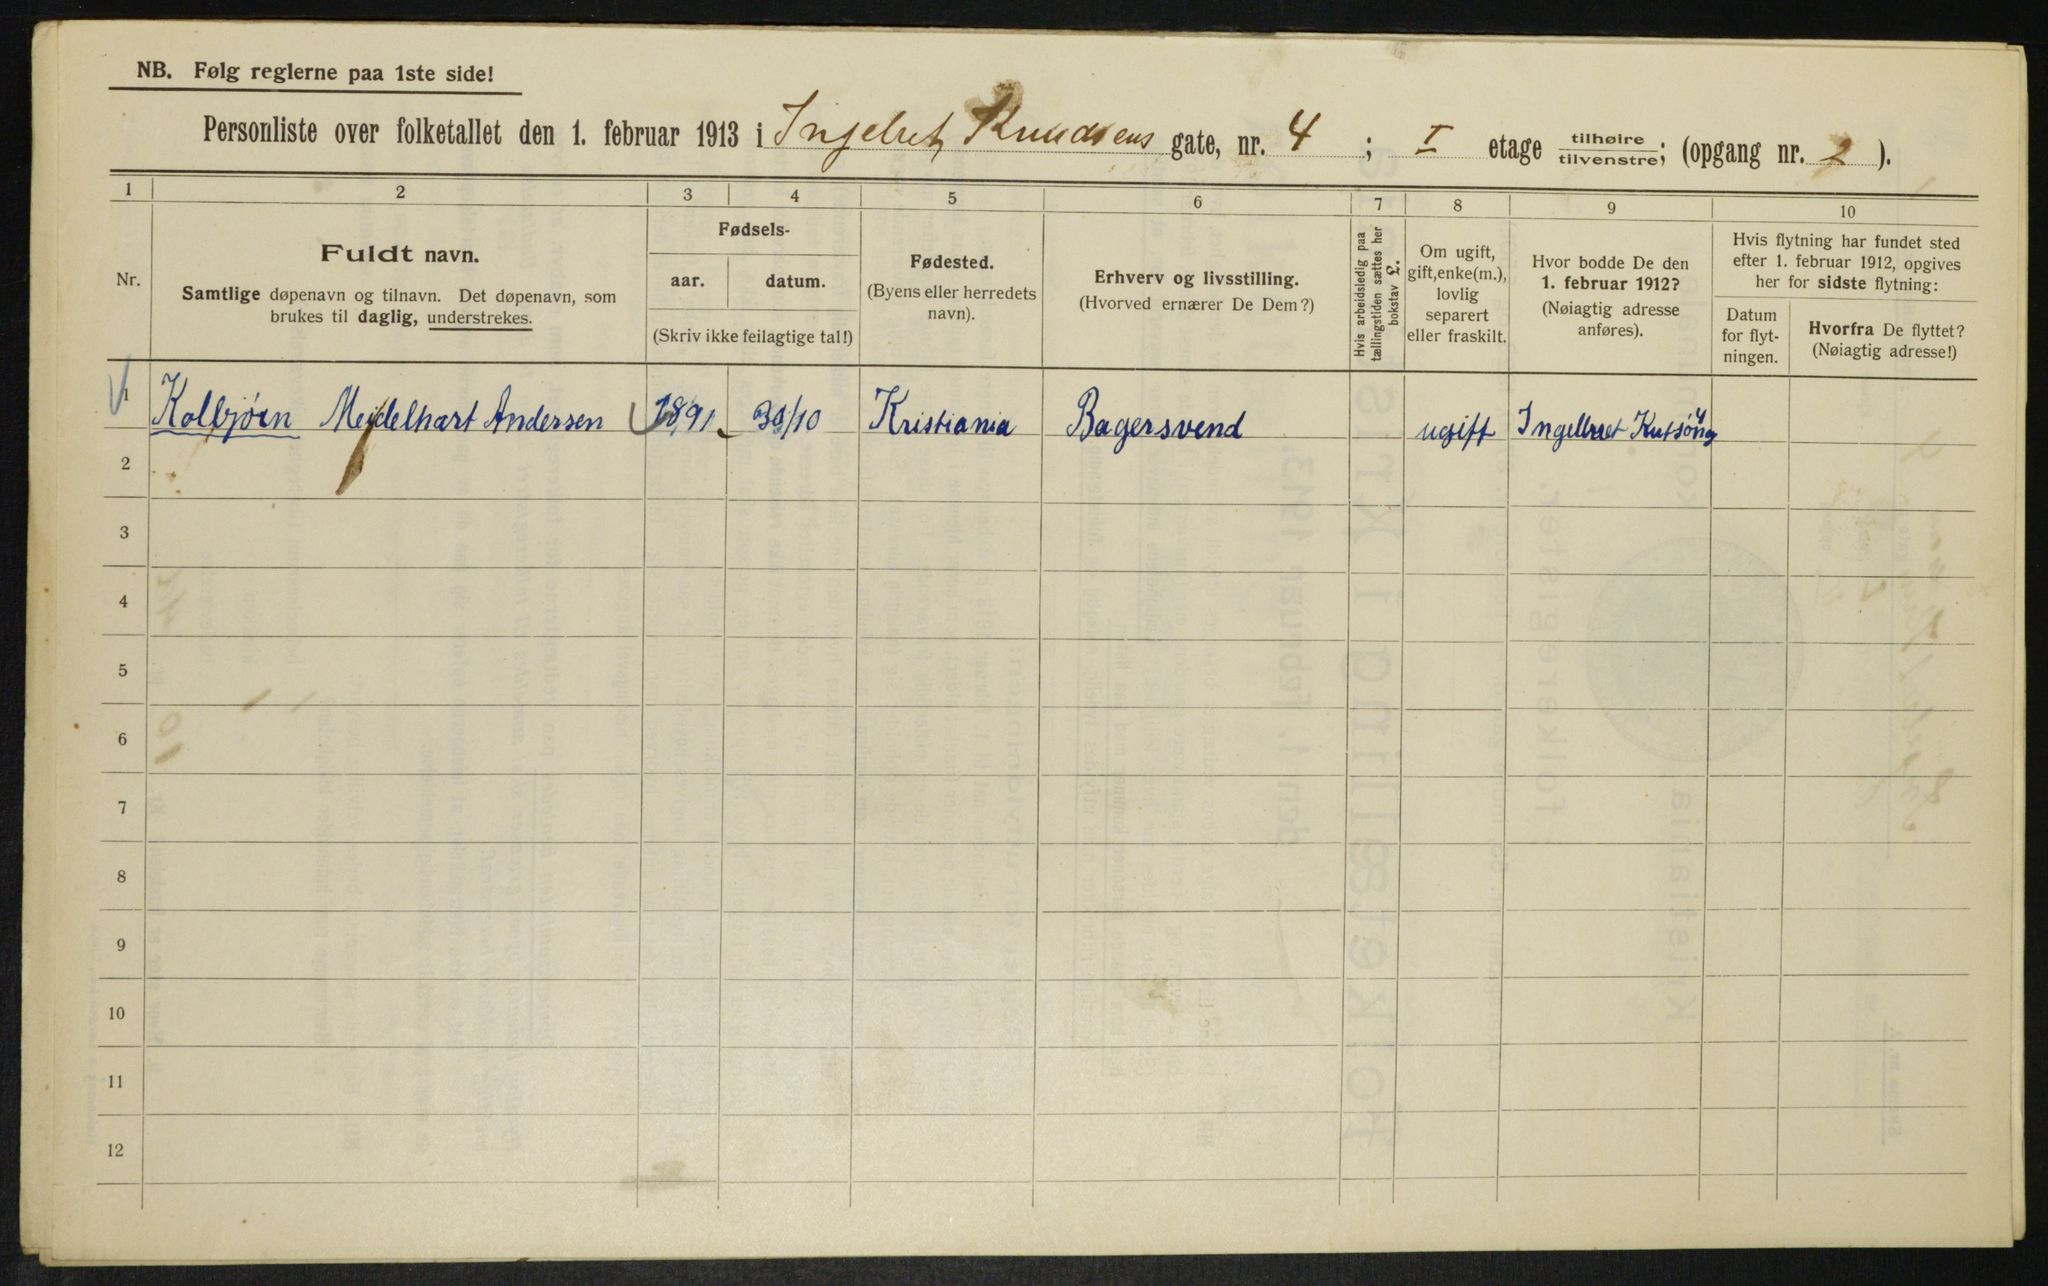 NB. Følg reglerne paa 1ste side!
Personliste over folketallet den 1. februar 1913 i Ingebret Knudsens gate, nr. 4 ; I etage tilhøire tilvenstre; (opgang nr. 2 ).
1 2 3 4 5 6 7 8 9 10
Nr.
Fuldt navn.
Samtlige døpenavn og tilnavn. Det døpenavn, som
brukes til daglig, understrekes.
Fødsels-
aar. datum.
(Skriv ikke feilagtige tal!)
Fødested.
(Byens eller herredets
navn).
Erhverv og livsstilling.
(Hvorved ernærer De Dem?)
Hvis arbeidsledig paa
tællingstiden sættes her
bokstav L.
Om ugift,
gift, enke(m.),
lovlig
separert
eller fraskilt.
Hvor bodde De den
1. februar 1912?
(Nøiagtig adresse
anføres).
Hvis flytning har fundet sted
efter 1. februar 1912, opgives
her for sidste flytning:
Datum
for flyt-
ningen.
Hvorfra De flyttet?
(Nøiagtig adresse!)
1 Kolbjørn Meidelhart Andersen 1891 30/10 Kristiania Bagersvend ugift Ingelbret 4
2
3
4
5
6
7
8
9
10
11
12